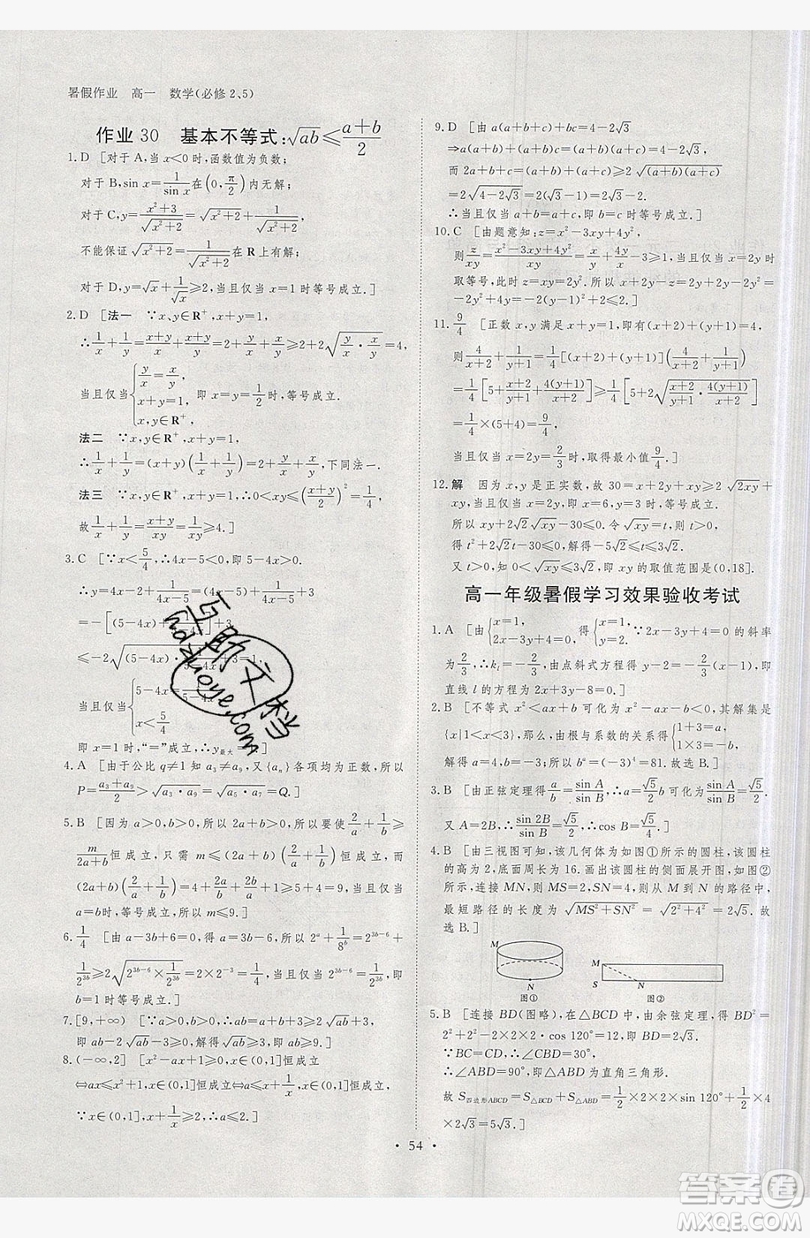 暑假作业 高一 数学(必修2、5)
作业 30 基本不等式:√ab≤(a+b)/2
1.D [对于A,当x<0时,函数值为负数;
对于B,sin x=1/sin x在(0,π/2)内无解;
对于C,y=(x²+3)/√(x²+2)=√(x²+2)+1/√(x²+2),
不能保证√(x²+2)=1/√(x²+2)在R上有解;
对于D,y=√x+1/√x≥2,当且仅当x=1时,等号成立.]
2.D [法一 ∵x、y∈R⁺,x+y=1,
∴1/x+1/y=(x+y)/x+(x+y)/y=2+y/x+x/y≥2+2√(y/x·x/y)=4,
当且仅当{y/x=x/y, x+y=1, 即x=y=1/2时,等号成立.
法二 ∵x,y∈R⁺,x+y=1,
∴1/x+1/y=(x+y)(1/x+1/y)=2+y/x+x/y,下同法一.
法三 ∵x,y∈R⁺,x+y=1,∴0<xy≤((x+y)/2)²=1/4,
故1/x+1/y=(x+y)/xy=1/xy≥4.]
3.C [∵x<5/4,∴4x-5<0,即5-4x>0,
当且仅当
即x=1时,“=”成立,∴y最大
4.A [由于公比q≠1知a₃≠a₉,又{aₙ}各项均为正数,所以
P=(a₃+a₉)/2>√(a₃·a₉)=√(a₅·a₇)=Q.]
5.B [因为a>0,b>0,所以要使2/a+1/b≥
m/(2a+b)恒成立,只需(2a+b)(2/a+1/b)≥m恒成立,而
(2a+b)(2/a+1/b)=4+2a/b+2b/a+1≥5+4=9,当且仅当
a=b时,等号成立,∴m≤9.]
6.1/4 [由a-3b+6=0,得a=3b-6,所以2ᵃ+1/8ᵇ=2^(3b-6)+
1/2^(3b)≥2√(2^(3b-6)×1/2^(3b))=2×2⁻³=1/4,当且仅当2^(3b-6)=1/2^(3b),
即b=1时等号成立.]
7.[9,+∞) [∵a>0,b>0,∴ab=a+b+3≥2√ab+3.]
8.(-∞,2] [x∈(0,1]时,x²-ax+1≥0恒成立
⇔ax≤x²+1,x∈(0,1]恒成立⇔a≤x+1/x,x∈(0,1]恒成立.
∵x∈(0,1],x+1/x≥2,∴a≤2.]
9.D [由a(a+b+c)+bc=4-2√3,
得(a+c)·(a+b)=4-2√3.∵a、b、c>0.
而2a+b+c=(a+b)+(a+c)≥2√((a+b)(a+c))
=2√(4-2√3)=2√((√3-1)²)=2√3-2.
∴当且仅当a+b=a+c,即b=c时等号成立.]
10.C [由题意知:z=x²-3xy+4y²,
则z/xy=(x²-3xy+4y²)/xy=x/y+4y/x-3≥1,当且仅当x=2y时
取等号,此时z=xy=2y².
∴x+2y-z=2y+2y-2y²=-2(y-1)²+2≤2.]
11.9/4 [正数x,y满足x+y=1,
则
当且仅当x=2y=2/3时,取得最小值9/4.]
12.解 因为x,y是正实数,故30=x+2y+xy≥2√2xy+xy,
当且仅当x=2y,即x=6,y=3时,等号成立.
所以xy+2√2√xy-30≤0.令√xy=t,则t>0,
得t²+2√2t-30≤0,解得-5√2≤t≤3√2.
又t>0,知0<√xy≤3√2,即xy的取值范围是(0,18].
高一年级暑假学习效果验收考试
1.A [由{x=1, 2x-3y-4=0, 得{x=1, y=-2/3. ∵2x-3y-4=0的斜率
为2/3,∴kₗ=-2/3.由点斜式方程得y+2/3=-2/3(x-1),即
直线l的方程为2x+3y=0.]
2.B [不等式x²<ax-b可化为x²-ax+b<0,其解集是
{x|1<x<3},那么,由根与系数的关系得{1+3=a, 1×3=b,
解得a=4,b=3.所以bᵃ=3⁴=81.故选B.]
3.D [由正弦定理得a/b=sin A/sin B,∴a/b=√5/2可化为sin A/sin B=√5/2.
又A=2B,∴sin 2B/sin B=√5/2,∴cos B=√5/4.]
4.B [由三视图可知,该几何体为如图①所示的圆柱,该圆柱
的高为2,底面周长为16.画出该圆柱的侧面展开图,如图②
所示,连接MN,则MS=2,SN=4,则从M到N的路径中,
最短路径的长度为√(MS²+SN²)=√(2²+4²)=2√5.故
选B.]
M
N
图①
M
S
N
图②
5.B [连接BD(图略),在△BCD中,由余弦定理,得BD²=
2²+2²-2×2×2·cos 120°=12,即BD=2√3.
∵BC=CD,∠C=120°,∴∠CBD=30°,
∴∠ABD=90°,即△ABD为直角三角形.
故S四边形ABCD=S△BCD+S△ABD=1/2×2×2×sin 120°+1/2×4
×2√3=5√3.]
· 54 ·
互助文档
hdzuoye.com
答案圈
MXQE.COM